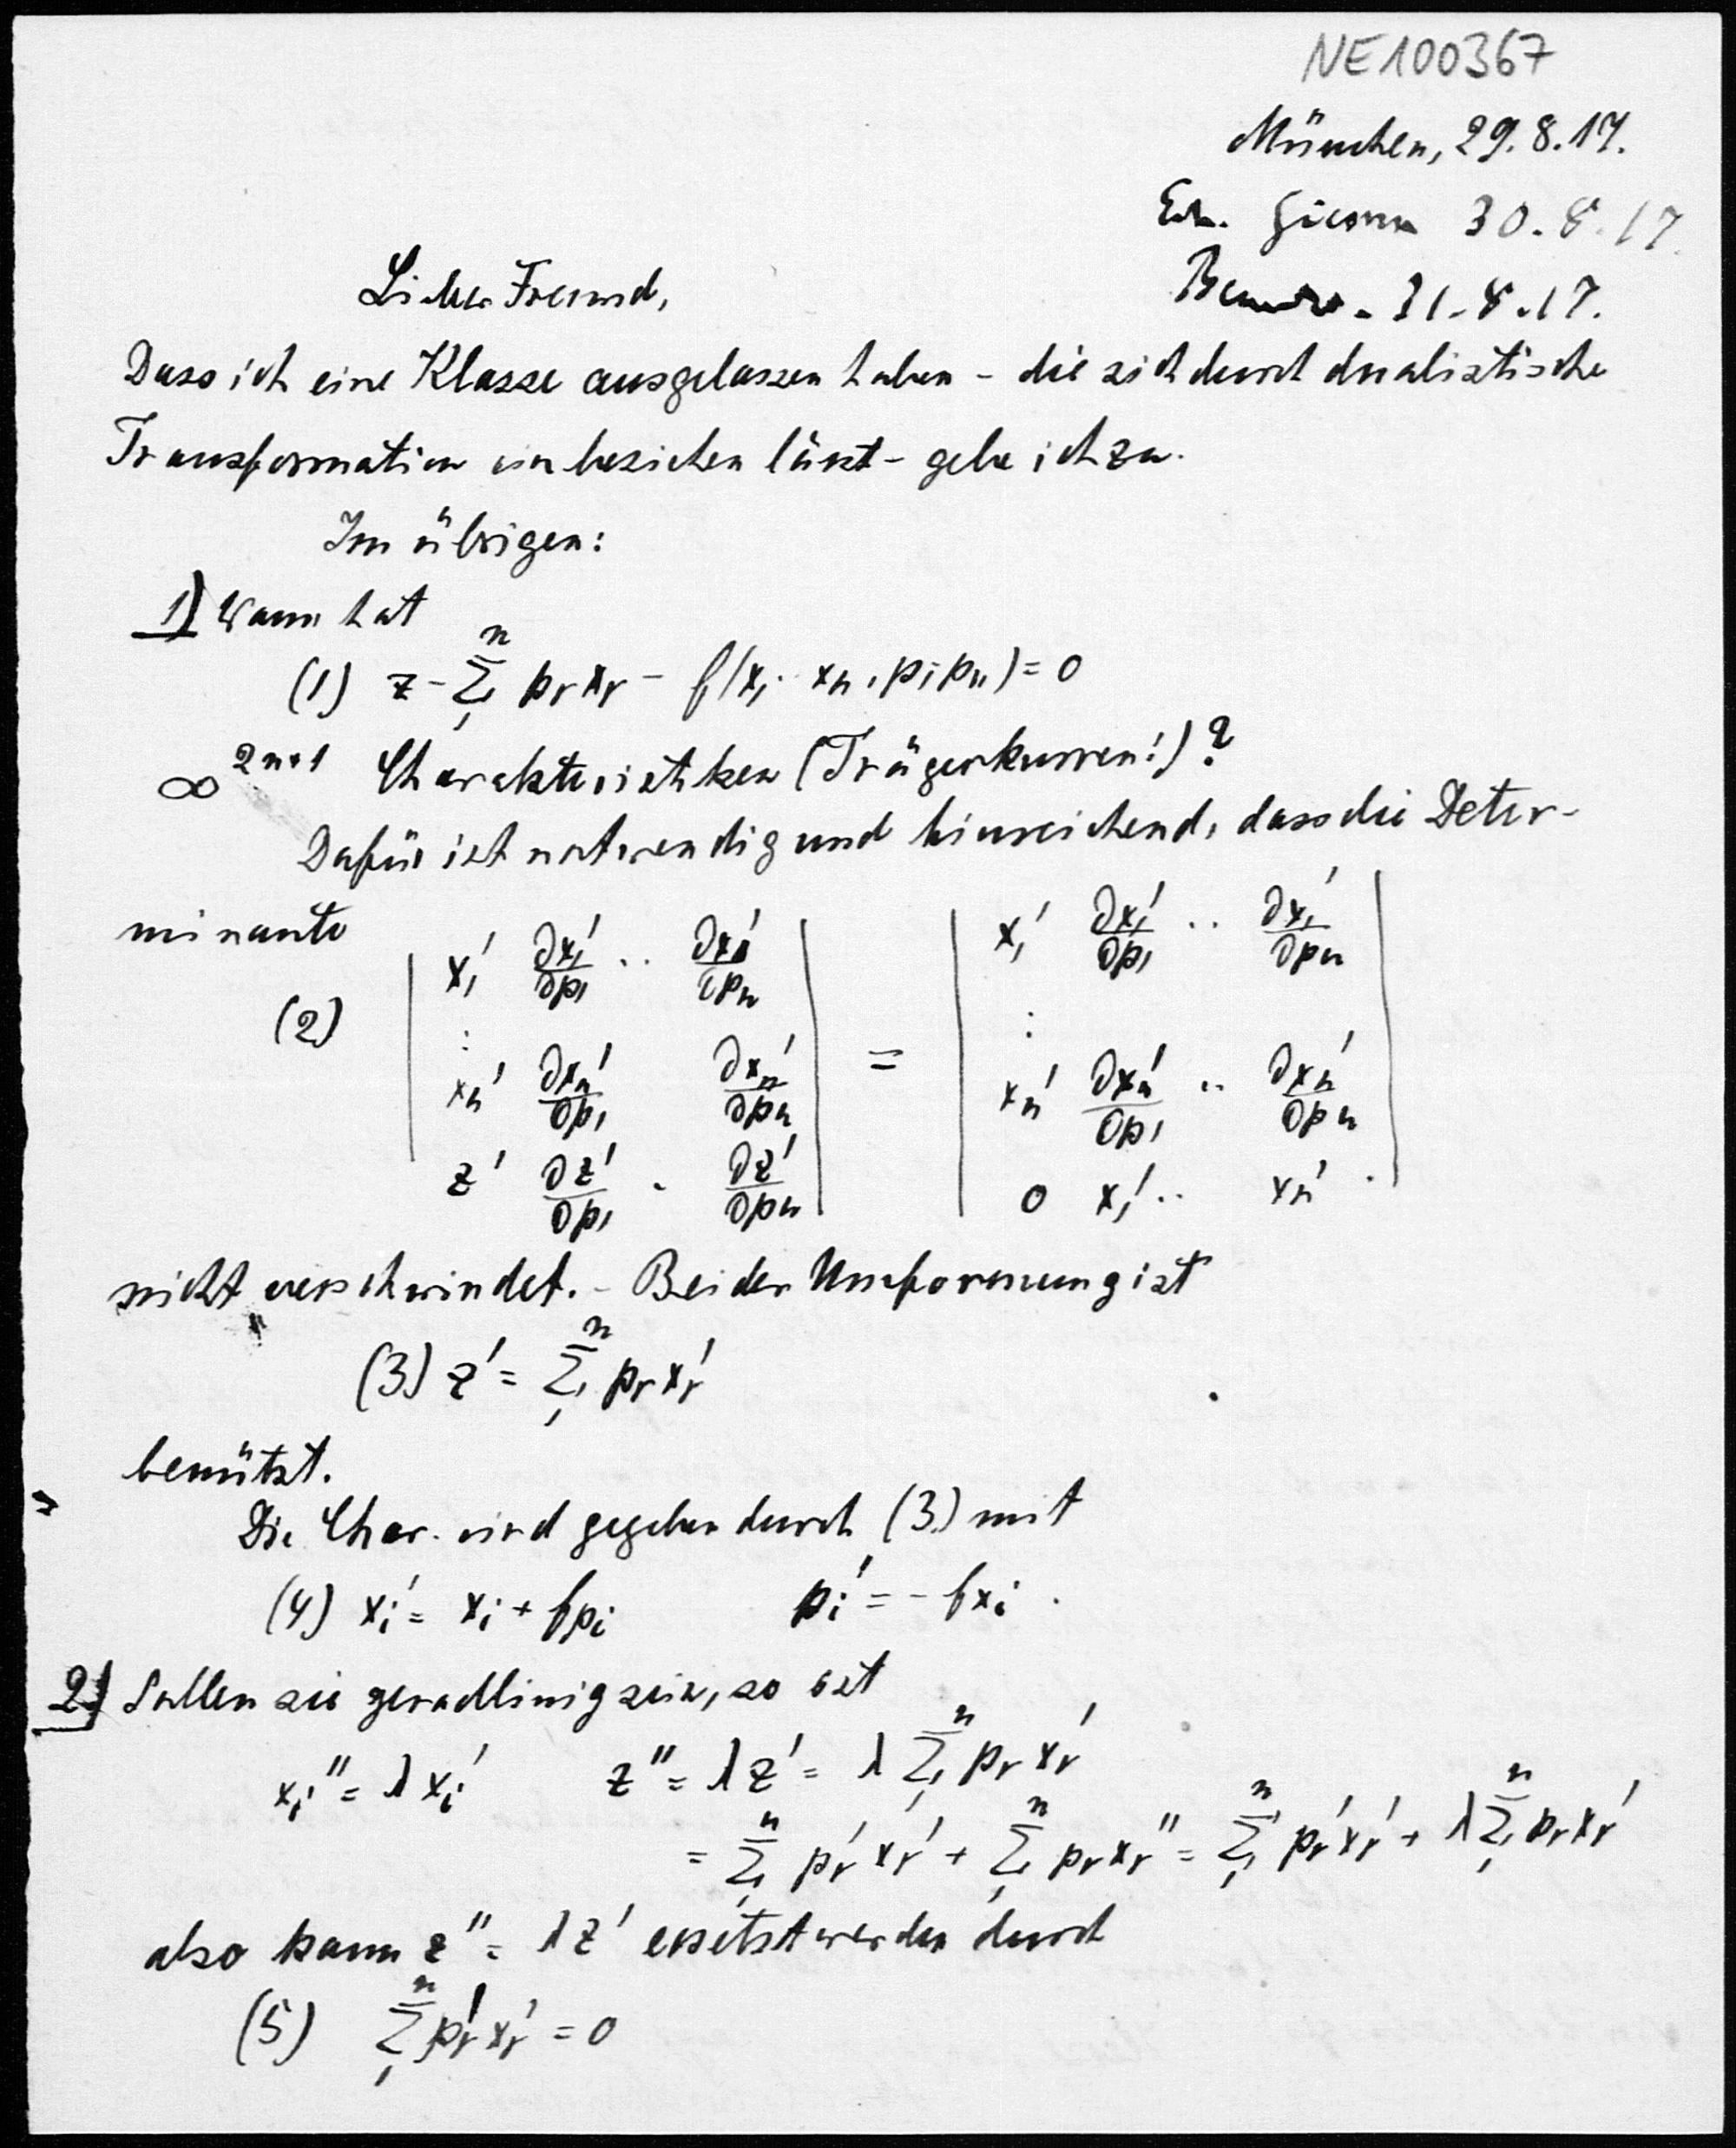 NE100367
München, 29.8.17.
Erh. Giessen 30.8.17.
Beantw. 31.8.17.
Lieber Freund,
Dass ich eine Klasse ausgelassen haben – die sich durch dualistische
Transformation einbeziehen lässt – gebe ich zu.
Im übrigen:
1) Wann hat
(1) z - Σ₁ⁿ pᵣxᵣ - f(x₁·· xₙ, p₁ pₙ) = 0
∞²ⁿ⁺¹ Charakteristiken (Trägerkurven!)?
Dafür ist notwendig und hinreichend, dass die Deter-
minante
(2) | x₁' ∂x₁'/∂p₁ ·· ∂x₁'/∂pₙ | = | x₁' ∂x₁'/∂p₁ ·· ∂x₁'/∂pₙ |
: :
xₙ' ∂xₙ'/∂p₁ ∂xₙ'/∂pₙ xₙ' ∂xₙ'/∂p₁ ·· ∂xₙ'/∂pₙ
z' ∂z'/∂p₁ · ∂z'/∂pₙ 0 x₁' ·· xₙ'
nicht verschwindet. – Bei der Umformung ist
(3) z' = Σ₁ⁿ pᵣxᵣ'
benützt.
Die Char. sind gegeben durch (3) mit
(4) xᵢ' = xᵢ + fpᵢ pᵢ' = - fxᵢ .
2) Sollen sie geradlinig sein, so ist
xᵢ'' = λxᵢ' z'' = λz' = λ Σ₁ⁿ pᵣxᵣ'
= Σ₁ⁿ pᵣ'xᵣ' + Σ₁ⁿ pᵣxᵣ'' = Σ₁ⁿ pᵣ'xᵣ' + λ Σ₁ⁿ pᵣxᵣ'
also kann z'' = λz' ersetzt werden durch
(5) Σ₁ⁿ pᵣ'xᵣ' = 0